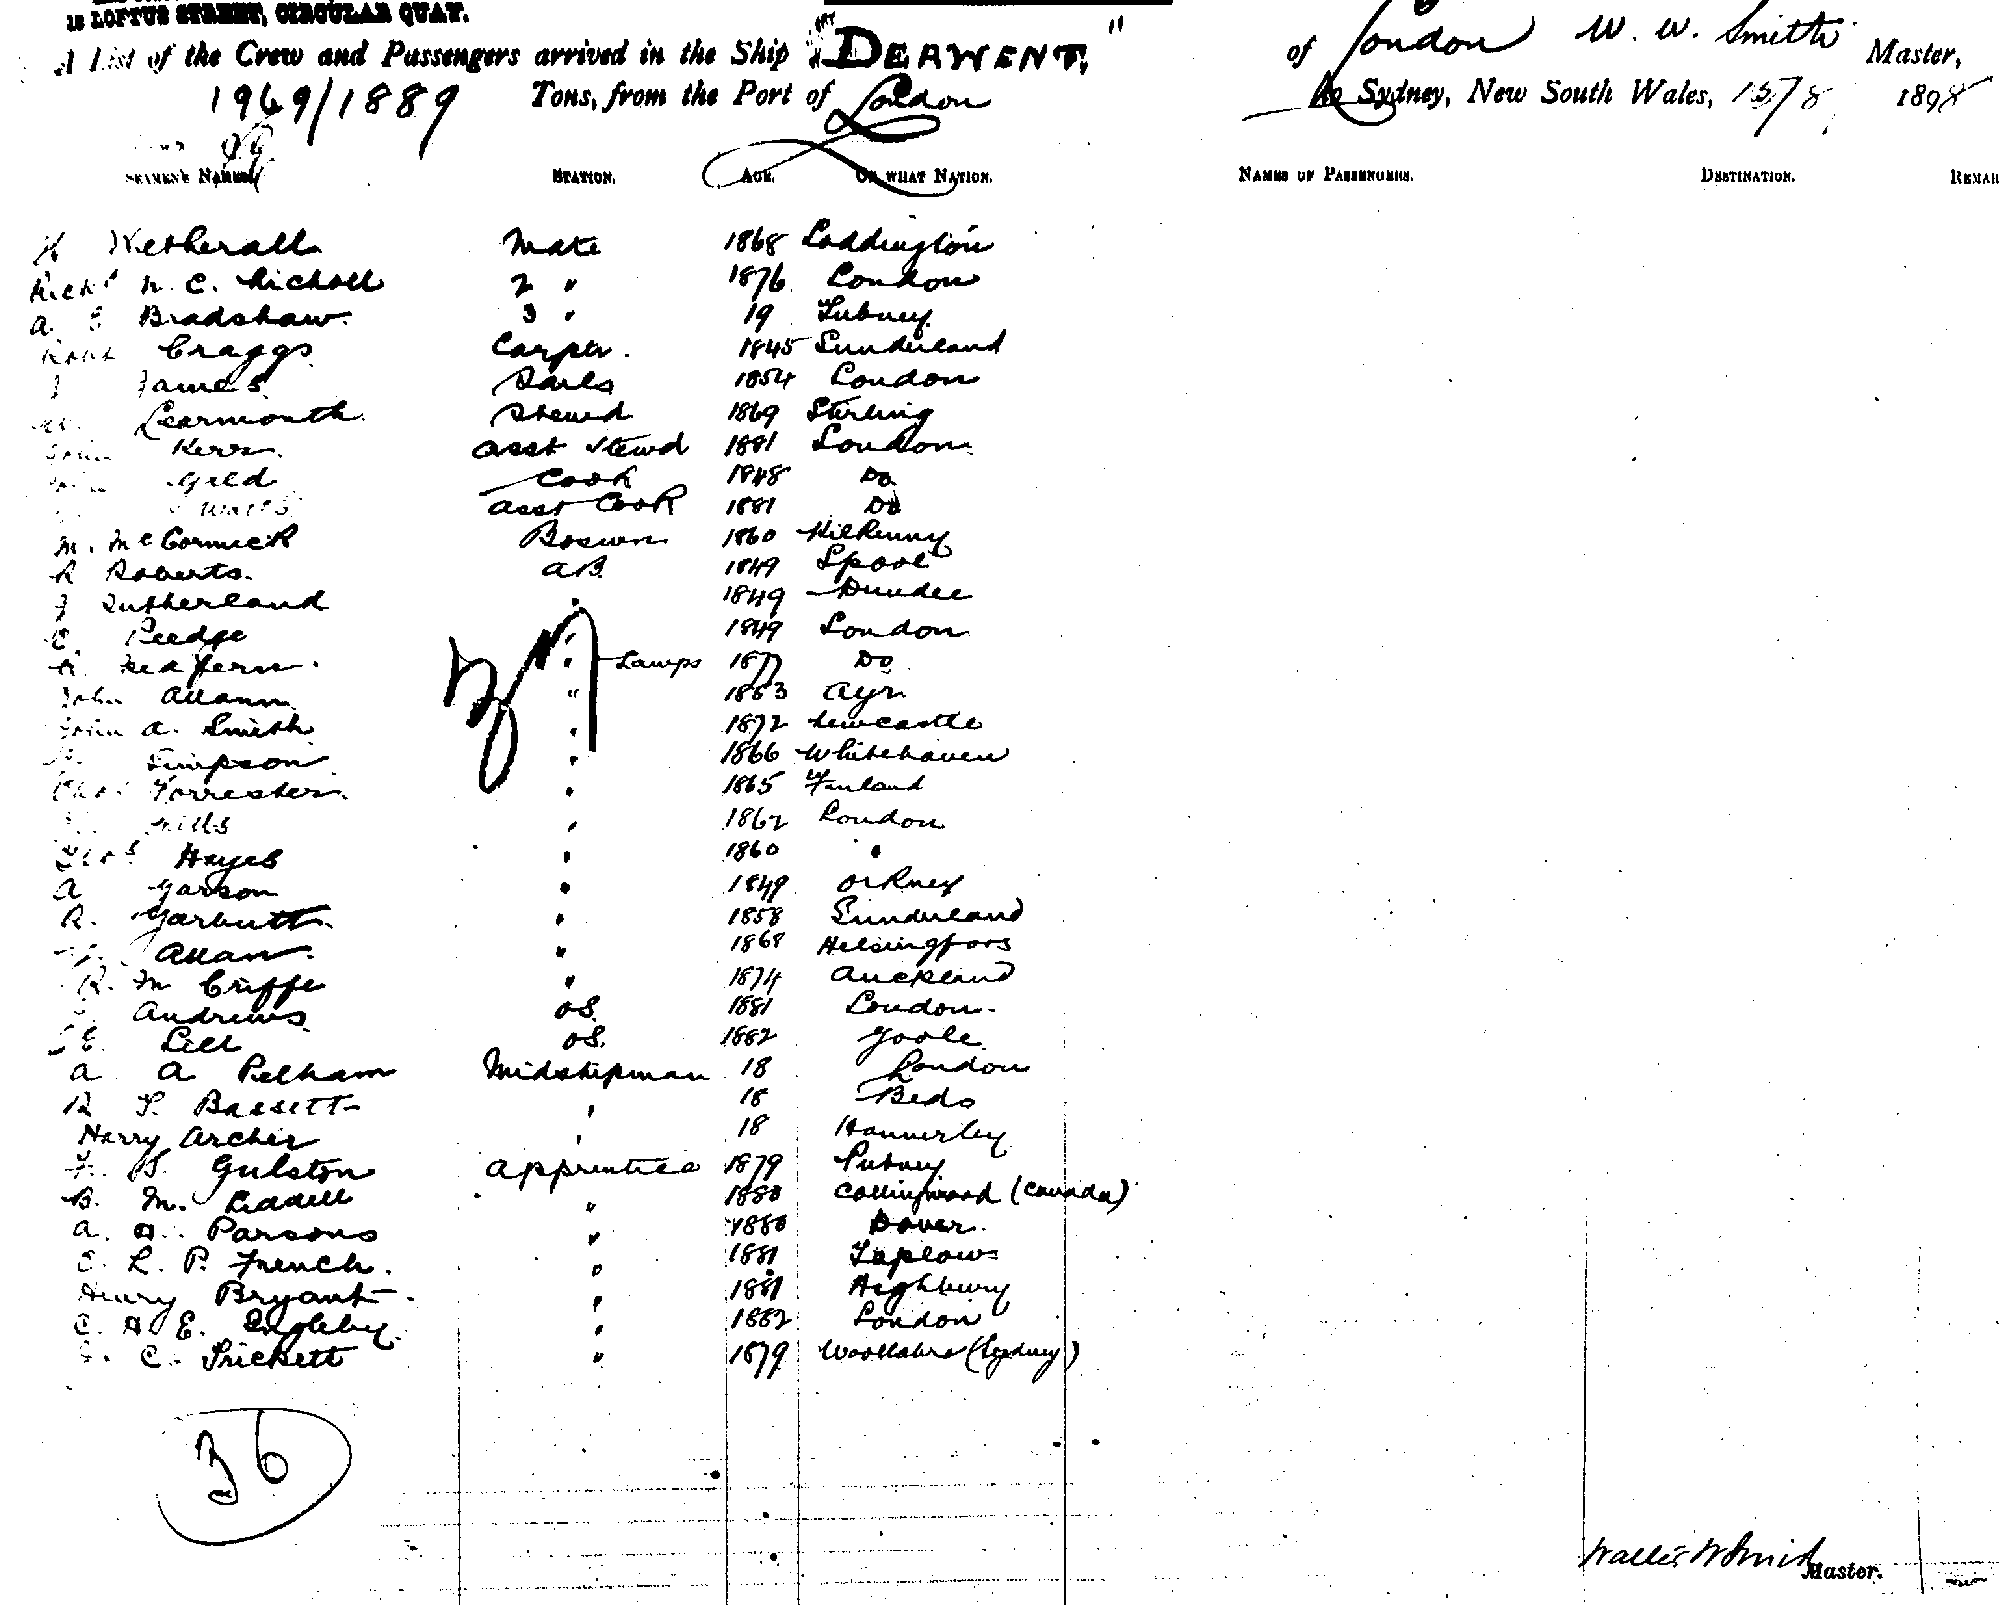 18 LOFTUS STREET, CIRCULAR QUAY.
A List of the Crew and Passengers arrived in the Ship "DERWENT," of London W. W. Smith Master,
1969/1889 Tons, from the Port of London to Sydney, New South Wales, 15/8 1898
SEAMEN'S NAMES. STATION. AGE. OF WHAT NATION. NAMES OF PASSENGERS. DESTINATION. REMAR
Wetherall Mate 1868 Loddington
Richd N. C. Nicholl 2 " 1876 London
A E Bradshaw 3 " 19 Putney
Robt Craggs Carper. 1845 Sunderland
J James Sails 1854 London
Learmonth Stewd 1869 Stirling
John Kerr Asst Stewd 1881 London
Gild Cook 1848 Do
Watts Asst Cook 1881 Do
M. McCormick Boswn 1860 Kilkenny
R Roberts AB 1849 Lpool
J Sutherland " 1849 Dundee
C. Peedge " 1849 London
Redfern " Lamps 1877 Do
John Allann " 1853 Ayr
John A. Smith " 1872 Newcastle
Simpson " 1866 Whitehaven
Chas Forrester " 1865 Finland
Mills " 1862 London
Thos Hayes " 1860 "
A Garson " 1849 Orkney
R. Garbutt " 1858 Sunderland
Allan " 1868 Helsingfors
R. M Griffe " 1874 Auckland
Andrews OS. 1881 London
E. Lill OS. 1882 Goole
A A Pelham Midshipman 18 London
R T. Bassett " 18 Beds
Harry Archer " 18 Hannerley
F. B. Gulston Apprentice 1879 Putney
B. M. Liddell " 1880 Collingwood (Canada)
A. H. Parsons " 1880 Dover.
C. L. P. French. " 1881 Taplow
Henry Bryant. " 1881 Highbury
C. H. E. Ingleby " 1882 London
C. Trickett " 1879 Woollahra (Sydney)
36
Wallis W Smith Master.